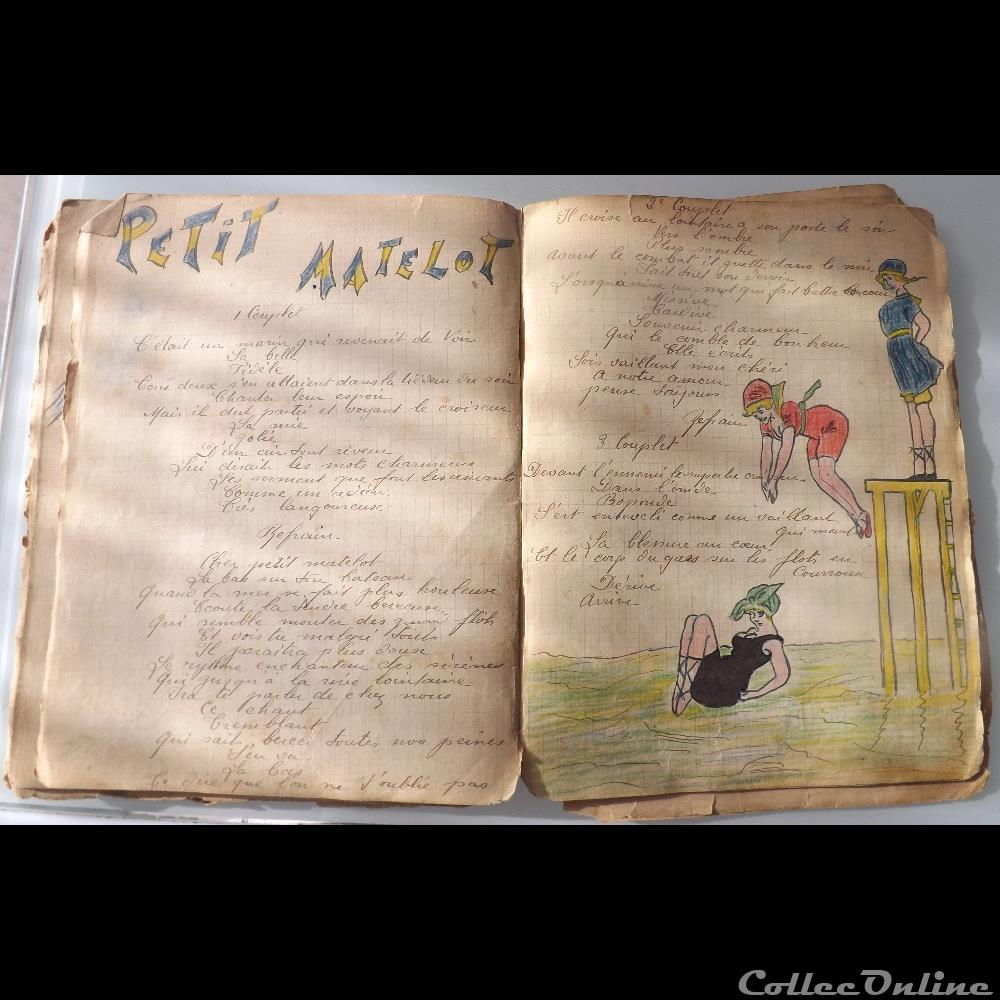 PETIT MATELOT
1 Couplet
C'était un marin qui revenait de voir
Sa belle
Fidèle
Tous deux s'en allaient dans la tiédeur du soir
Chanter leur espoir
Mais il dut partir et voyant le croiseur
Sa mie
Jolie
D'un air tout rêveur
Lui disait les mots charmeurs
Ses serment que font les amants
Comme un
Très langoureuse
Refrain.
Cher petit matelot
La bas sur ton bateau
Quand la mer se fait plus houleuse
Ecoute la tendre berceuse
Qui semble monter des grand flots
Et vois tu malgré tout
Il paraîtra plus douce
Le rytme enchanteur des sérènes
Qui jusqu'à la rive lointaine
Ira te parler de chez nous
Ce chant
Tremblant
Qui sait bercer toutes nos peines
S'en va
La bas
Te dire que l'on ne t'oublie pas
2e Couplet
Il croise au lointain a son poste le soir
Vers l'ombre
Plus sombre
Avant le combat il guette dans le noir
Fait tout son devoir
Lorsqu'arrive un mot qui fait battre son coeur
Missive
Souvenir charmeur
Qui le comble de bonheur
Elle ecrit
Sois vaillant mon chéri
A notre amour
pense toujours
Refrain
3 Couplet
Devant l'ennemi le superbe croiseur
Dans l'onde
S'est enseveli comme un vaillant
qui meurt
La blessure au coeur
Et le corps du gars sur les flots en
Courroux
Dérive
Arrive
ColleeOnline